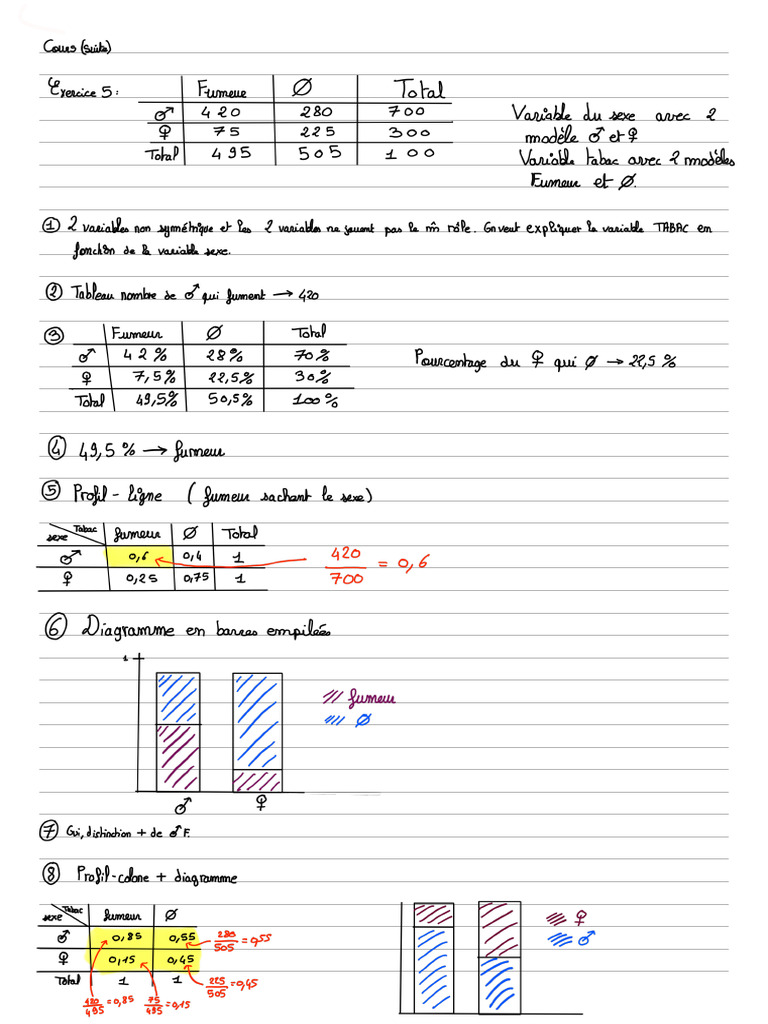 Cours (suite)
Exercice 5 : Fumeur Ø Total
♂ 420 280 700
♀ 75 225 300
Total 495 505 100
Variable du sexe avec 2
modèle ♂ et ♀
Variable tabac avec 2 modèles
Fumeur et Ø.
① 2 variables non symétrique et les 2 variables ne jouent pas le m̂ rôle. On veut expliquer la variable TABAC en
fonction de la variable sexe.
② Tableau nombre de ♂ qui fument → 420
③ Fumeur Ø Total
♂ 42% 28% 70%
♀ 7,5% 22,5% 30%
Total 49,5% 50,5% 100%
Pourcentage du ♀ qui Ø → 22,5 %
④ 49,5 % → fumeur
⑤ Profil - ligne ( fumeur sachant le sexe)
sexe Tabac fumeur Ø Total
♂ 0,6 0,4 1
♀ 0,25 0,75 1
420
700
= 0,6
⑥ Diagramme en barres empilées
1
fumeur
Ø
♂ ♀
⑦ Oui, distinction + de ♂ F.
⑧ Profil-colone + diagramme
sexe Tabac fumeur Ø
♂ 0,85 0,55
♀ 0,15 0,45
Total 1 1
280/505 = 0,55
225/505 = 0,45
420/495 = 0,85 75/495 = 0,15
♀
♂